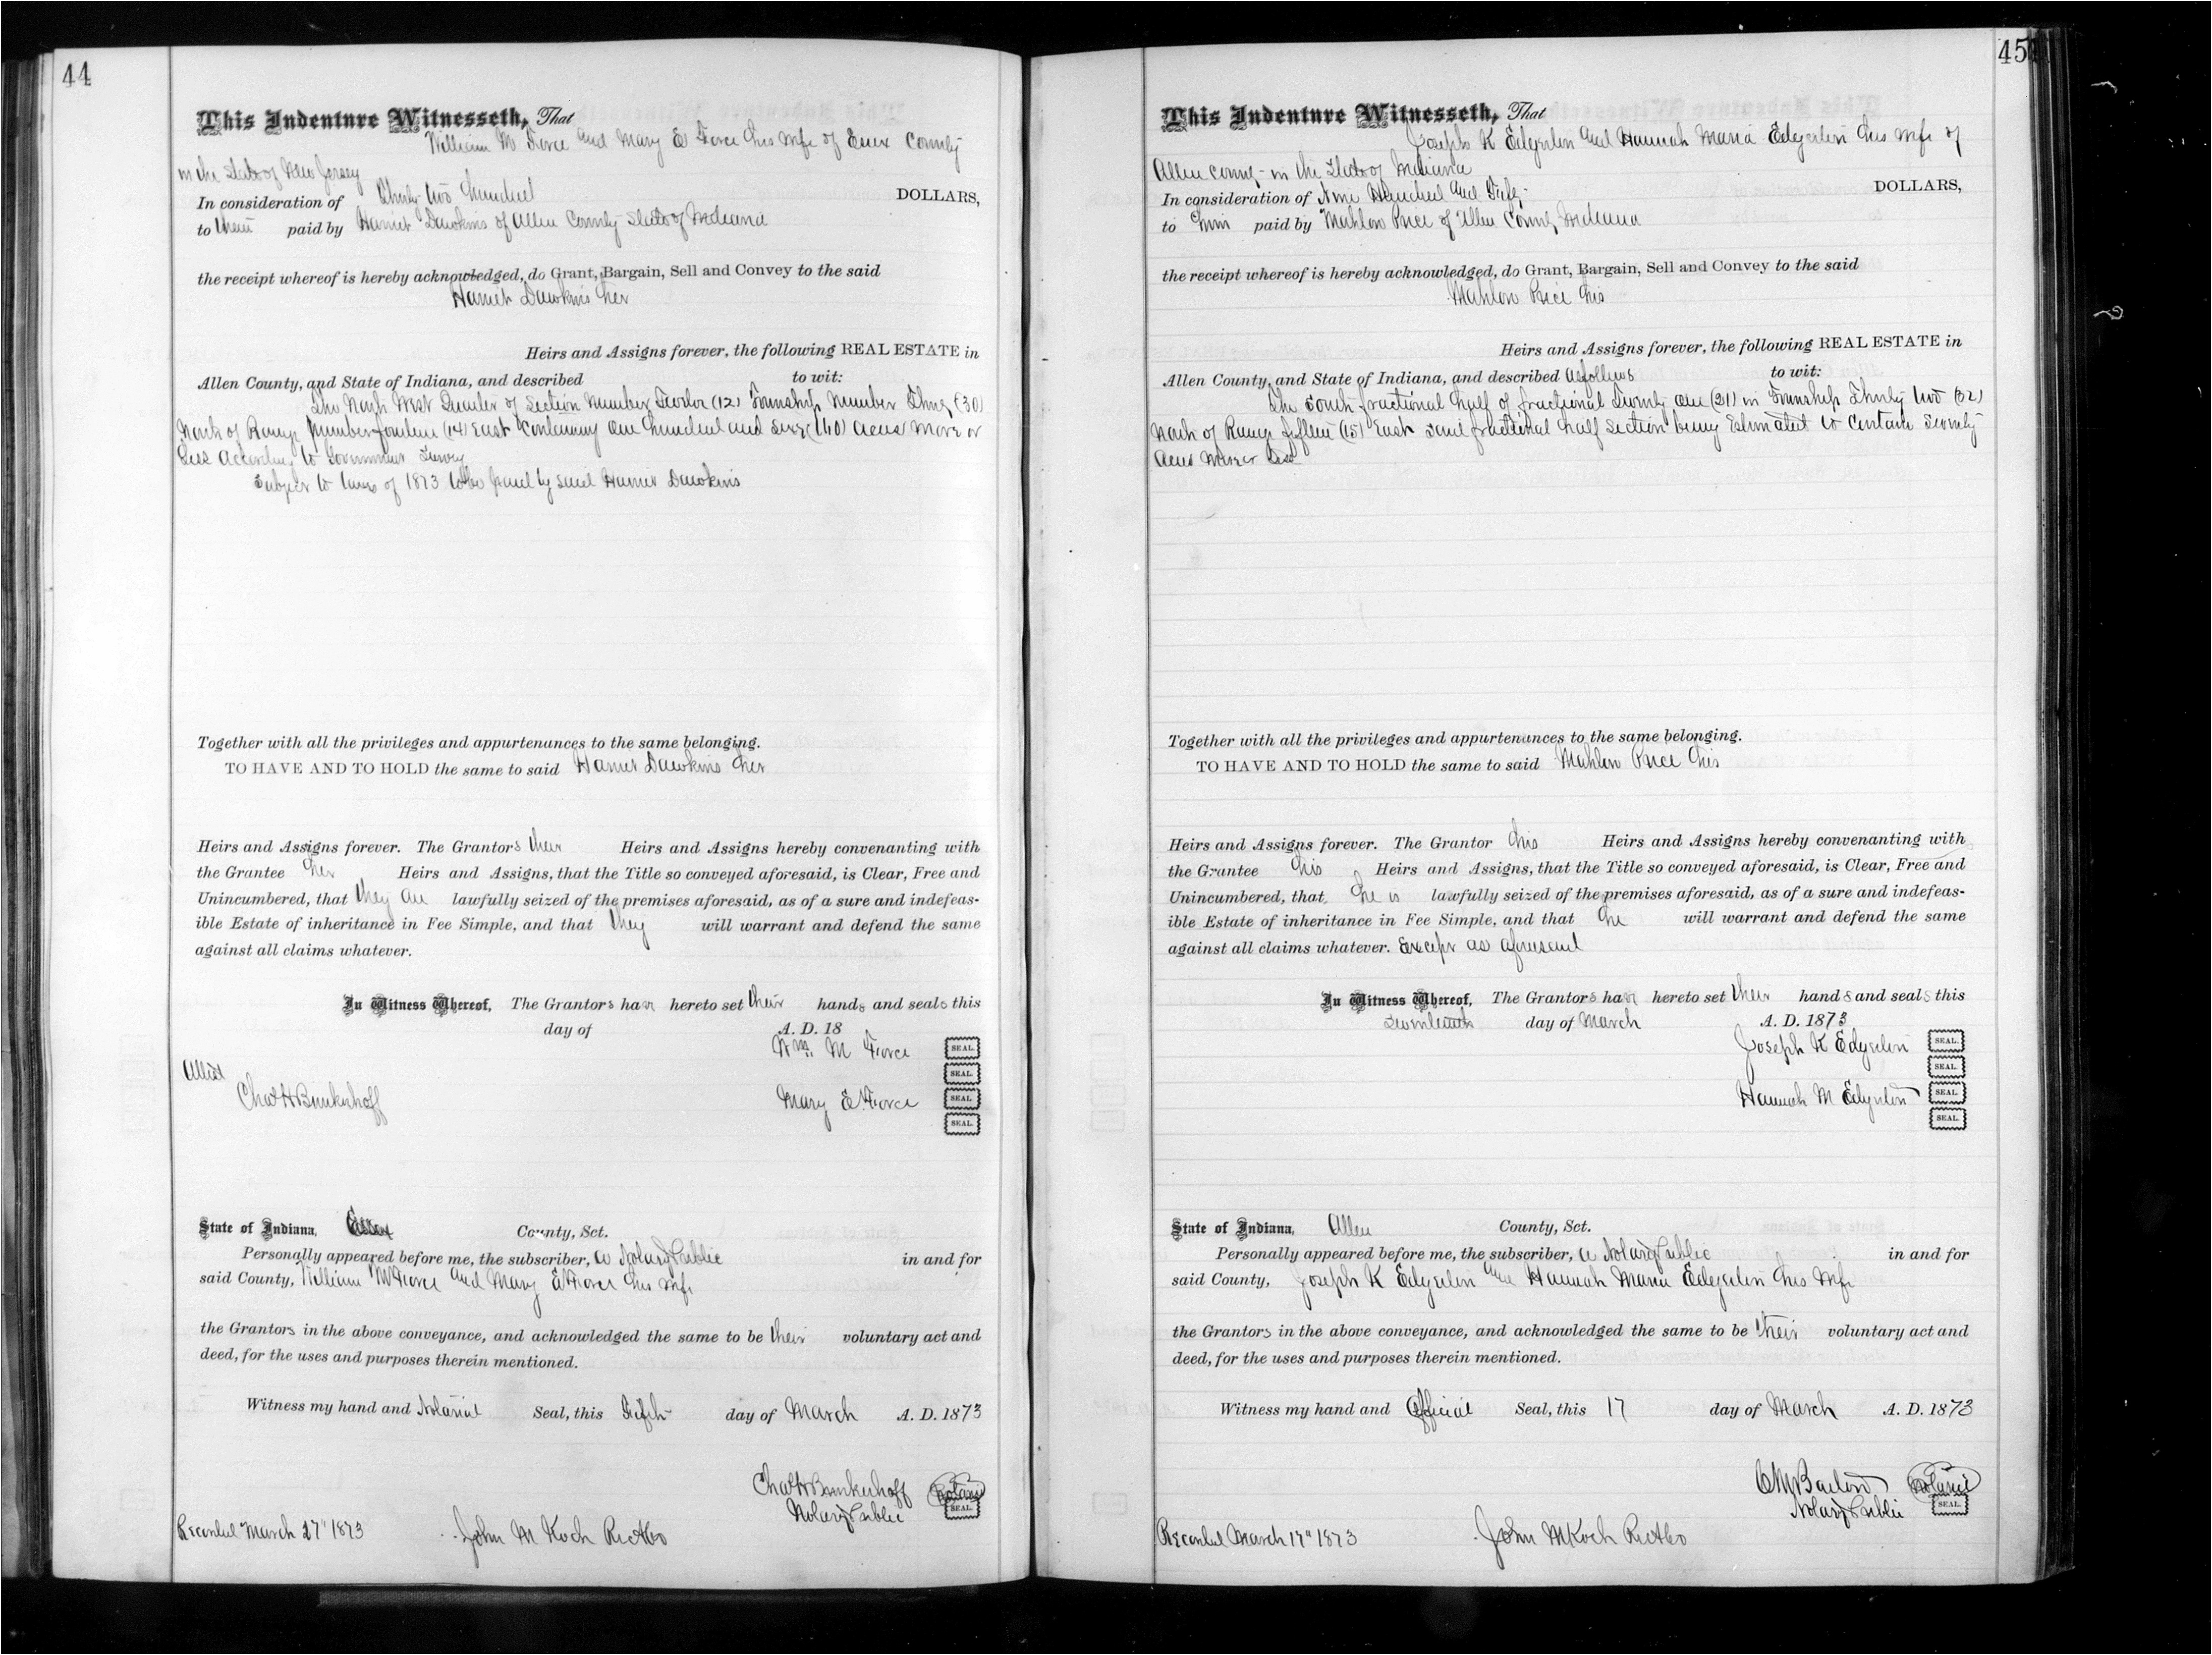 44
This Indenture Witnesseth, That
William M Force and Mary E Force his wife of Essex County
in the State of New Jersey
In consideration of Thirty two hundred DOLLARS,
to them paid by Harriet Dawkins of Allen County State of Indiana
the receipt whereof is hereby acknowledged, do Grant, Bargain, Sell and Convey to the said
Harriet Dawkins her
Heirs and Assigns forever, the following REAL ESTATE in
Allen County, and State of Indiana, and described to wit:
The North West Quarter of Section Number Twelve (12) Township Number Thirty (30)
North of Range Number fourteen (14) East Containing one hundred and sixty (160) acres more or
less According to Government Survey
Subject to taxes of 1873 to be paid by said Harriet Dawkins
Together with all the privileges and appurtenances to the same belonging.
TO HAVE AND TO HOLD the same to said Harriet Dawkins her
Heirs and Assigns forever. The Grantors their Heirs and Assigns hereby convenanting with
the Grantee her Heirs and Assigns, that the Title so conveyed aforesaid, is Clear, Free and
Unincumbered, that they are lawfully seized of the premises aforesaid, as of a sure and indefeas-
ible Estate of inheritance in Fee Simple, and that they will warrant and defend the same
against all claims whatever.
In Witness Whereof, The Grantors have hereto set their hands and seals this
day of A. D. 18
Wm. M Force SEAL.
SEAL.
Attest
Chas H Brinkerhoff Mary E. Force SEAL
SEAL.
State of Indiana, County, Sct.
Personally appeared before me, the subscriber, a Notary Public in and for
said County, William M Force and Mary E Force his wife
the Grantors in the above conveyance, and acknowledged the same to be their voluntary act and
deed, for the uses and purposes therein mentioned.
Witness my hand and Notarial Seal, this Fifth day of March A. D. 1873
Chas H Brinkerhoff Notarial
Notary Public SEAL.
Recorded March 27" 1873 John M Koch R

45
This Indenture Witnesseth, That
Joseph K Edgerton and Hannah Maria Edgerton his wife of
Allen County in the State of Indiana
In consideration of Nine Hundred and Fifty DOLLARS,
to him paid by Mahlon Price of Allen County Indiana
the receipt whereof is hereby acknowledged, do Grant, Bargain, Sell and Convey to the said
Mahlon Price his
Heirs and Assigns forever, the following REAL ESTATE in
Allen County, and State of Indiana, and described as follows to wit:
The South fractional half of fractional Twenty one (21) in Township Thirty two (32)
North of Range fifteen (15) East said fractional half Section being Estimated to Contain Seventy
acres more or less
Together with all the privileges and appurtenances to the same belonging.
TO HAVE AND TO HOLD the same to said Mahlon Price his
Heirs and Assigns forever. The Grantor his Heirs and Assigns hereby convenanting with
the Grantee his Heirs and Assigns, that the Title so conveyed aforesaid, is Clear, Free and
Unincumbered, that he is lawfully seized of the premises aforesaid, as of a sure and indefeas-
ible Estate of inheritance in Fee Simple, and that he will warrant and defend the same
against all claims whatever. Except as aforesaid
In Witness Whereof, The Grantors have hereto set their hands and seals this
day of March A. D. 1873
Joseph K Edgerton SEAL.
SEAL.
Hannah M Edgerton SEAL
SEAL.
State of Indiana, Allen County, Sct.
Personally appeared before me, the subscriber, a Notary Public in and for
said County, Joseph K Edgerton and Hannah Maria Edgerton his wife
the Grantors in the above conveyance, and acknowledged the same to be their voluntary act and
deed, for the uses and purposes therein mentioned.
Witness my hand and Official Seal, this 17 day of March A. D. 1873
Notarial
Notary Public SEAL.
Recorded March 17" 1873 John M Koch